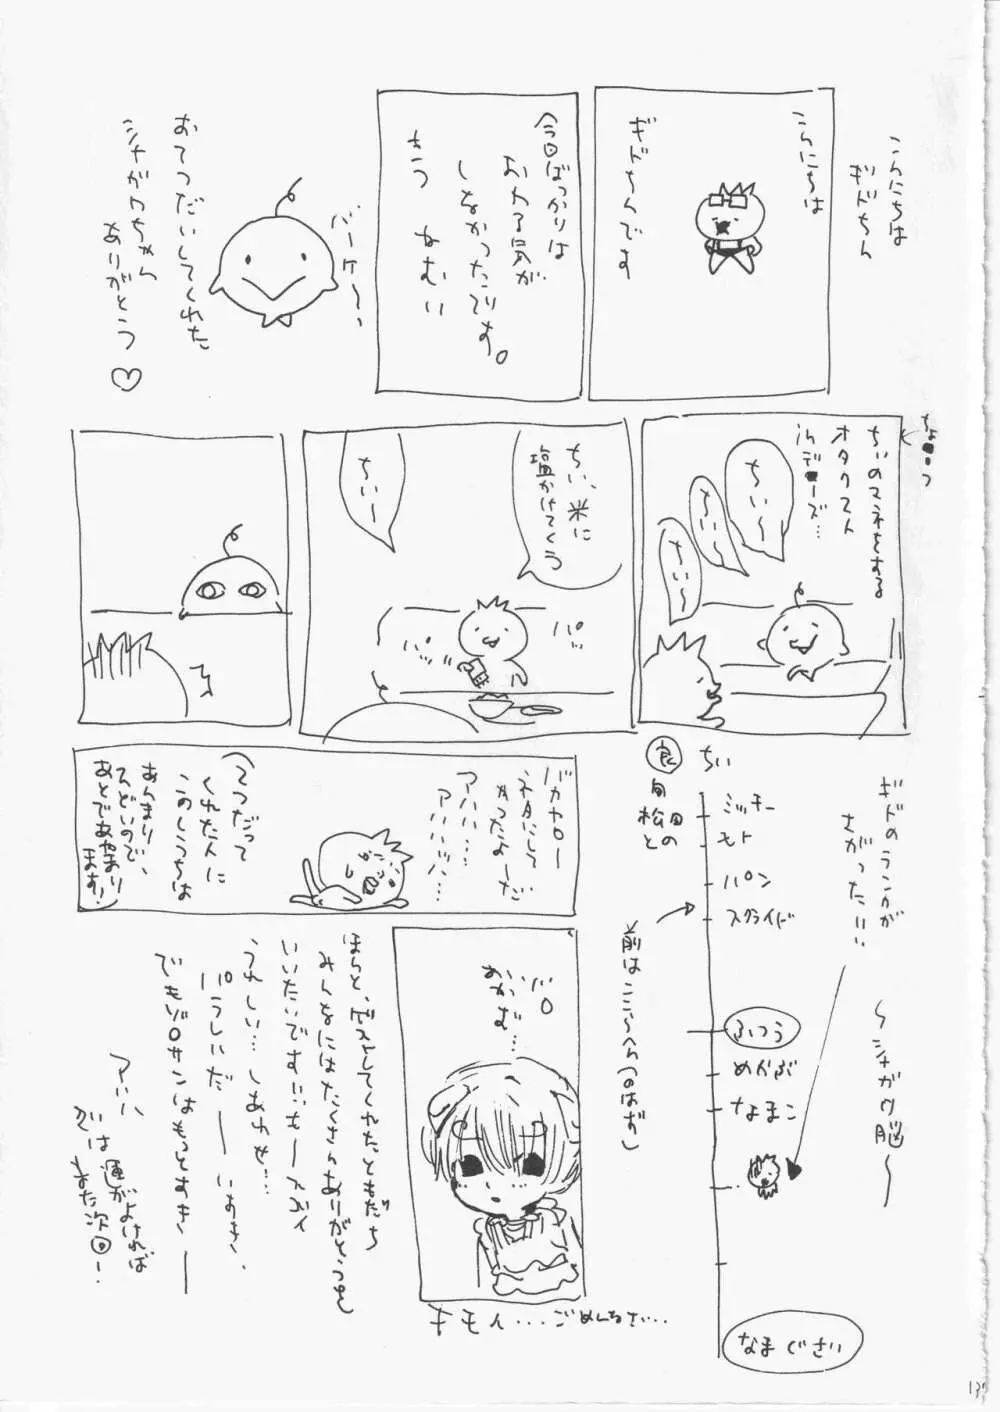 こんにちは
ギドちん
こんにちは
ギドちんです
今回ばっかりは
おわる気が
しなかったです。
もう ねむい
バーケ〜
おてつだいしてくれた
シャガワちゃん
ありがとう♡
ちぃのマネをする
オタクマスト
ちぃ〜
ちぃ〜
ちぃ〜
ちぃ、米に
塩かけてくう
パッ
パッ
ちぃー
バカヤロー
ネタにして
やったよーだ
アハハ…
アハハハッ…
(てつだって
くれた人に
このしうちは
あんまり
ひどいので、
あとであやまり
ます!)
ギドのランクが
さがった!!!
〜シャガワ脳〜
ちぃ
ミッキー
モト
パン
スクライド
前はここらへん(のはず)
ふつう
めかぶ
なまこ
なまぐさい
良
旬
松田
との
おかず…
キモイ...ごめんなさい...
ほらと、ゲストしてくれたともだち
みんなにはたくさんありがとうを
いいたいです!!
うれしい… しあわせ…
でもゾロサンはもっとすきー
アハハ
次は運がよければ
また次回ー!